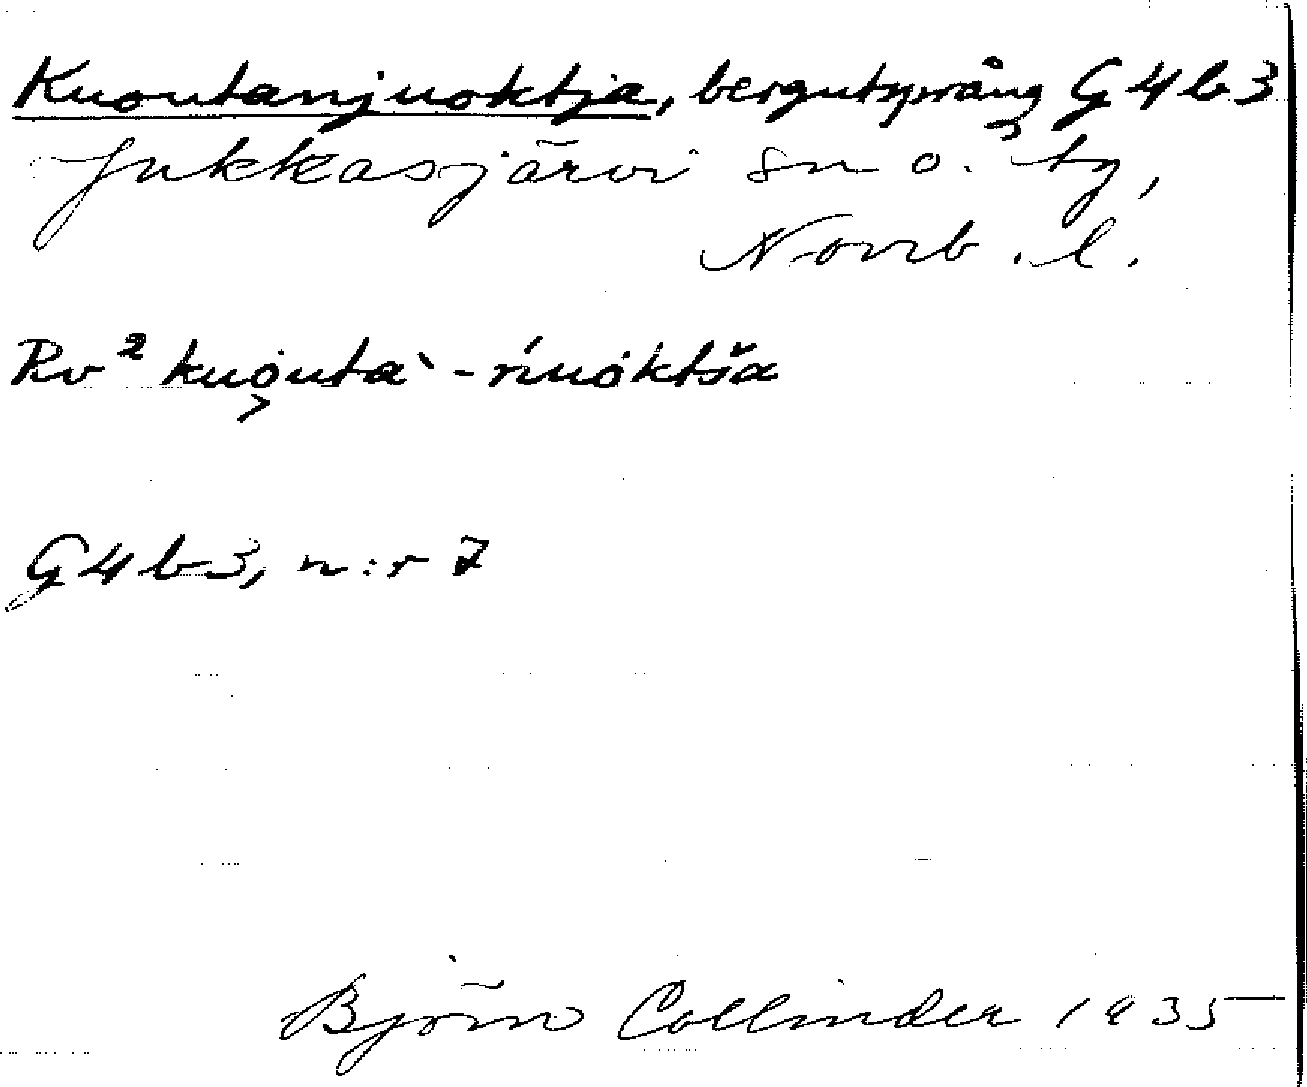 Kuoutanjuoktja, bergutsprång G4b3
Jukkasjärvi sn o. tg,
Norrb. l.
Rv² kuou̯ta` -ńuoktša
G4b3, n:r 7
Björn Collinder 1935